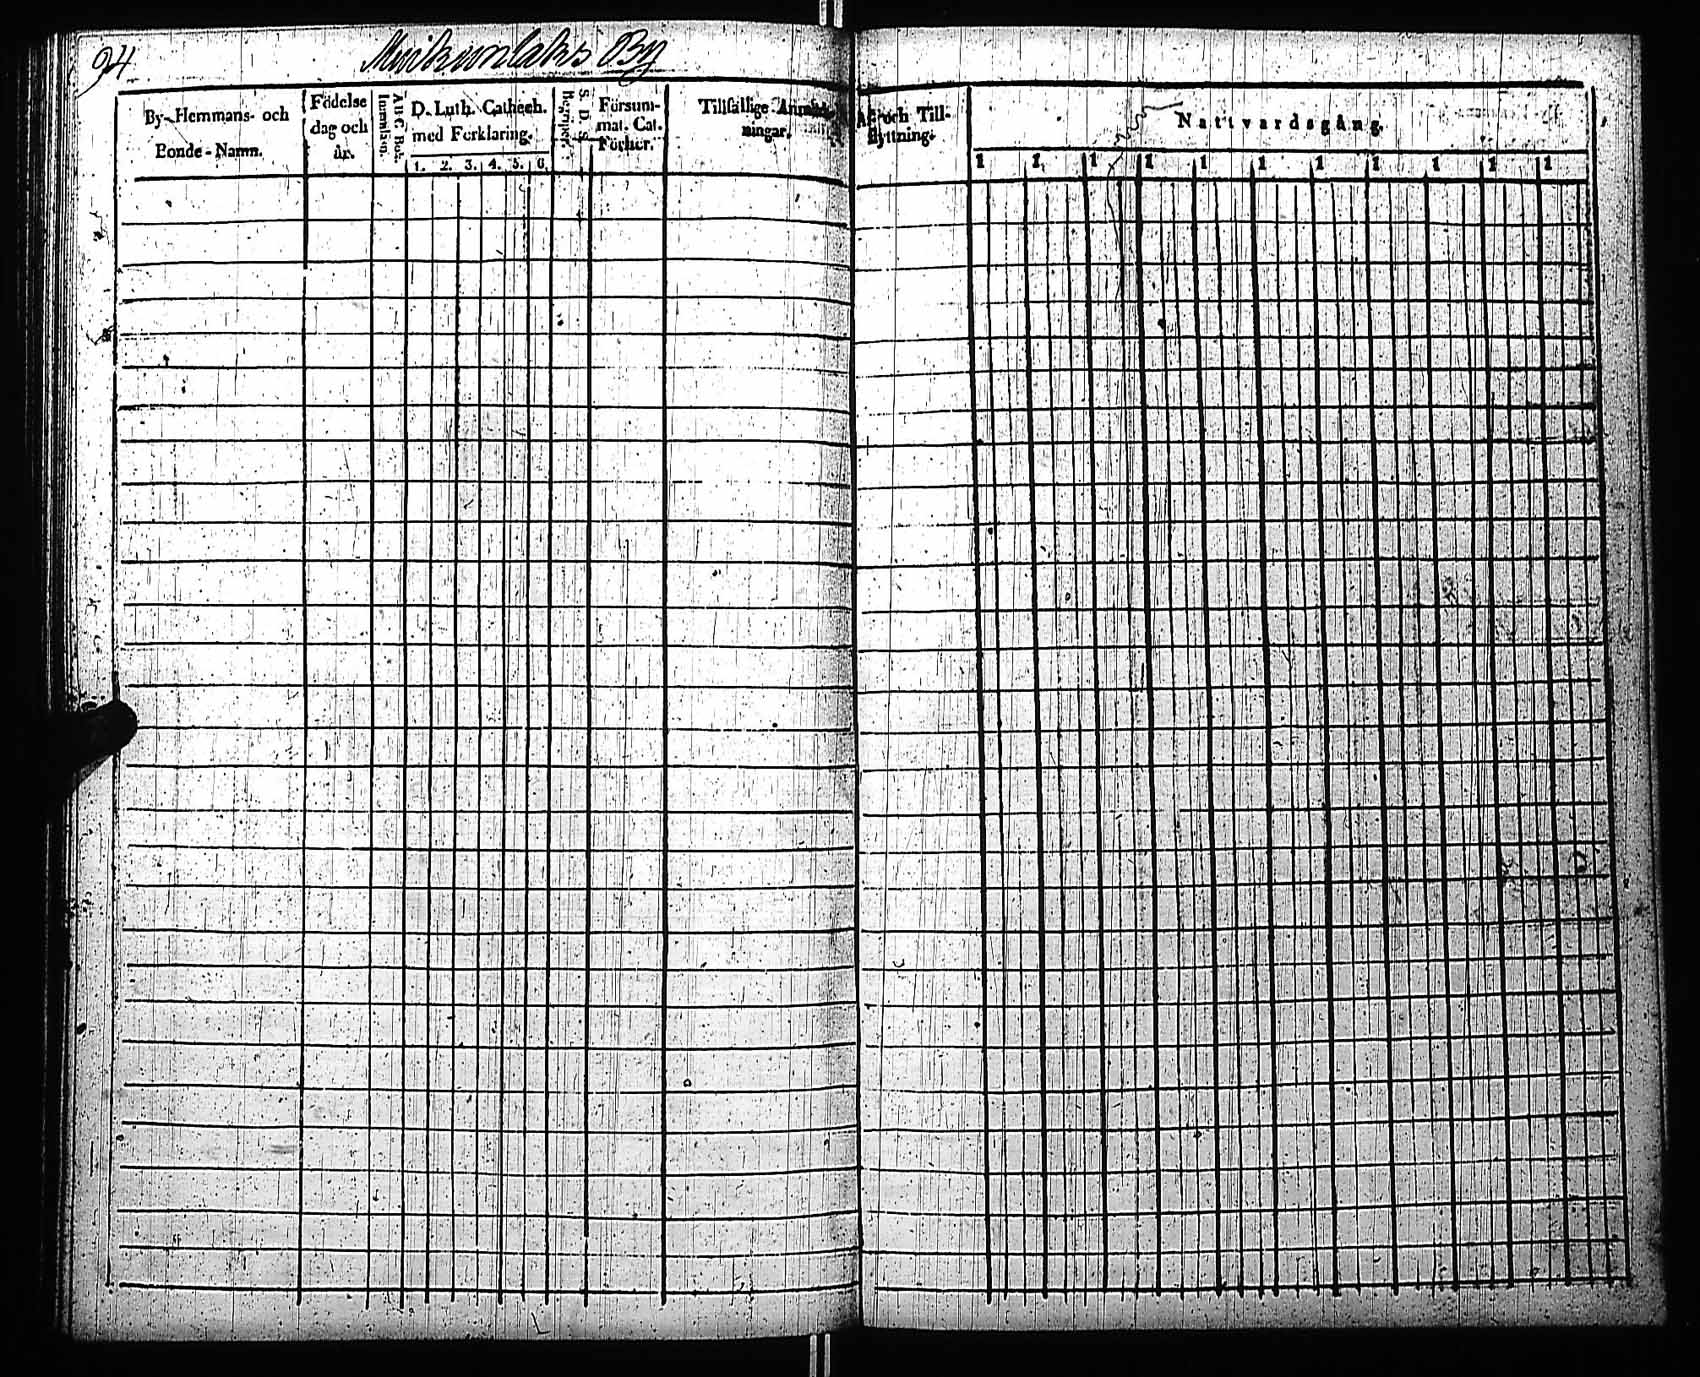 94
Muikunlaks By
By- Hemmans- och
Bonde-Namn.
Födelse
dag och
år.
A B C Bok.
Innanläsn.
D. Luth. Cathech.
med Förklaring.
1. 2. 3. 4. 5. 6.
S. D. S.
Försum-
mat. Cat.
Förhör.
Tillfällige Anmärk-
ningar.
Af- och Till-
flyttning.
Nattvardsgång.
1 1 1 1 1 1 1 1 1 1 1